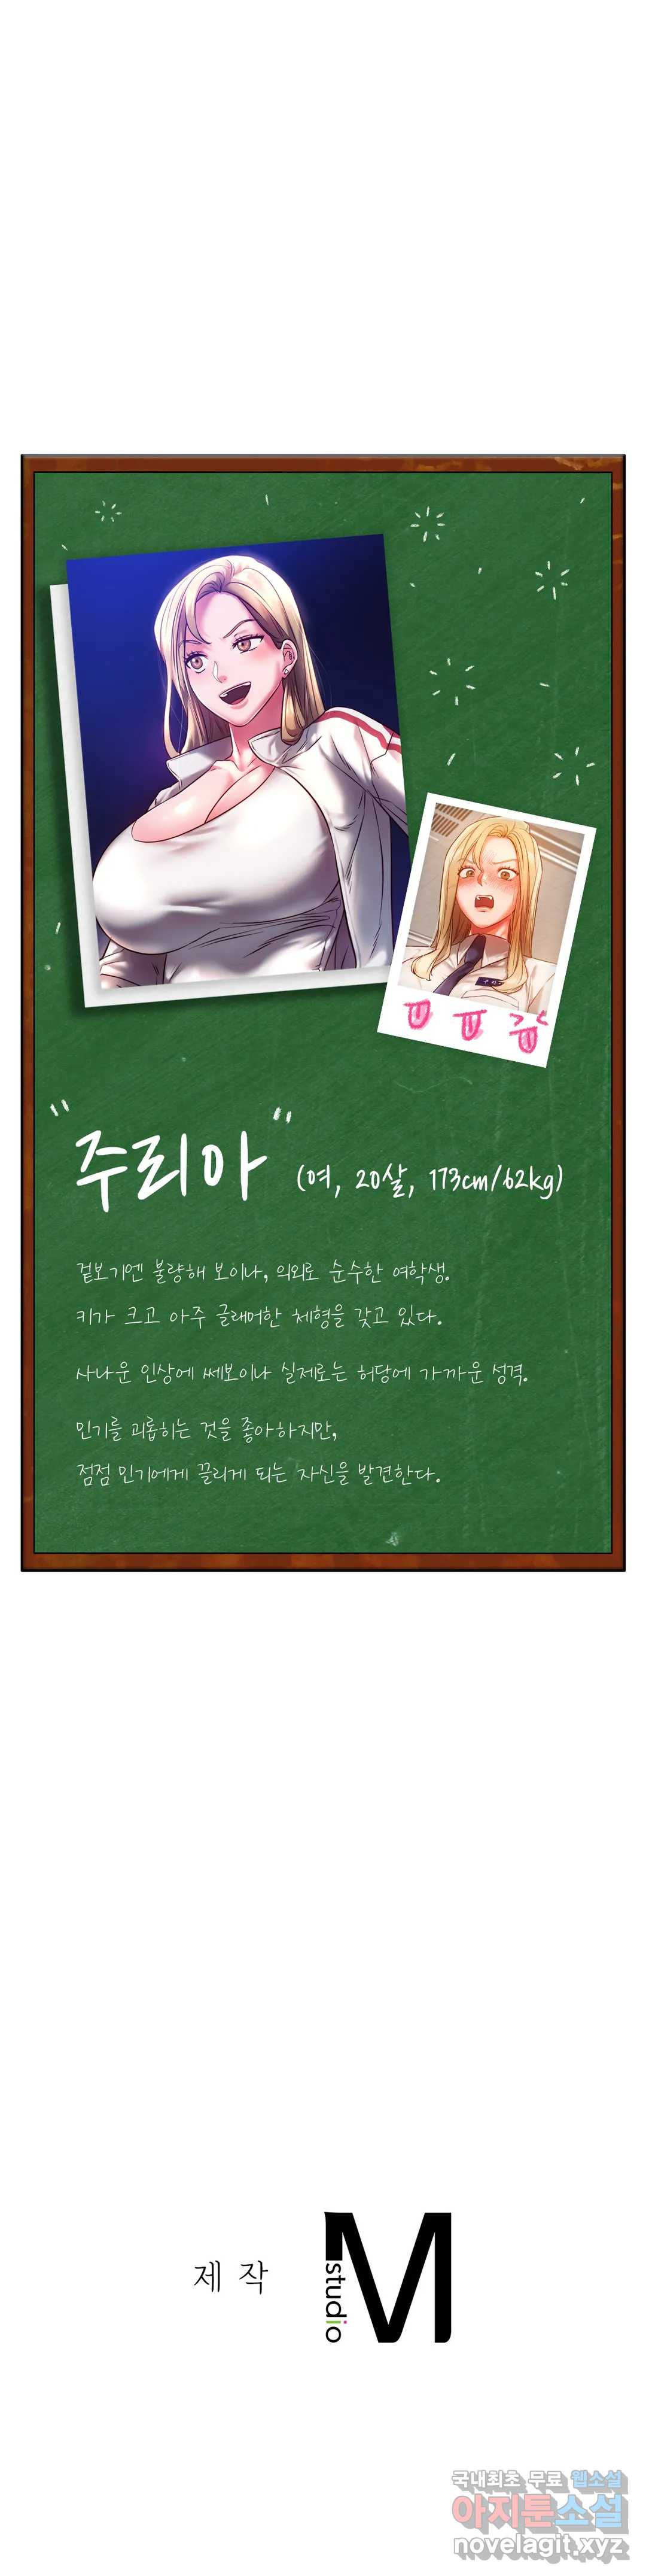 "주리아" (여, 20살, 173cm/62kg)
겉보기엔 불량해 보이나, 의외로 순수한 여학생.
키가 크고 아주 글래머한 체형을 갖고 있다.
사나운 인상에 쎄보이나 실제로는 허당에 가까운 성격.
민기를 괴롭히는 것을 좋아하지만,
점점 민기에게 끌리게 되는 자신을 발견한다.
제작
M
studio
국내최초 무료 웹소설
아지툰소설
novelagit.xyz